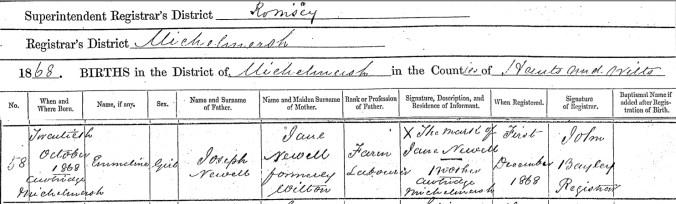 Superintendent Registrar's District Romsey
Registrar's District Michelmersh
1868. BIRTHS in the District of Michelmersh in the Counties of Hants and Wilts
No. When and Where Born. Name, if any. Sex. Name and Surname of Father. Name and Maiden Surname of Mother. Rank or Profession of Father. Signature, Description, and Residence of Informant. When Registered. Signature of Registrar. Baptismal Name if added after Registration of Birth.
58 Twentieth October 1868 Awbridge Michelmersh Emmeline Girl Joseph Newell Jane Newell formerly Wilton Farm Labourer X The mark of Jane Newell Mother Awbridge Michelmersh First December 1868 John Bayley Registrar